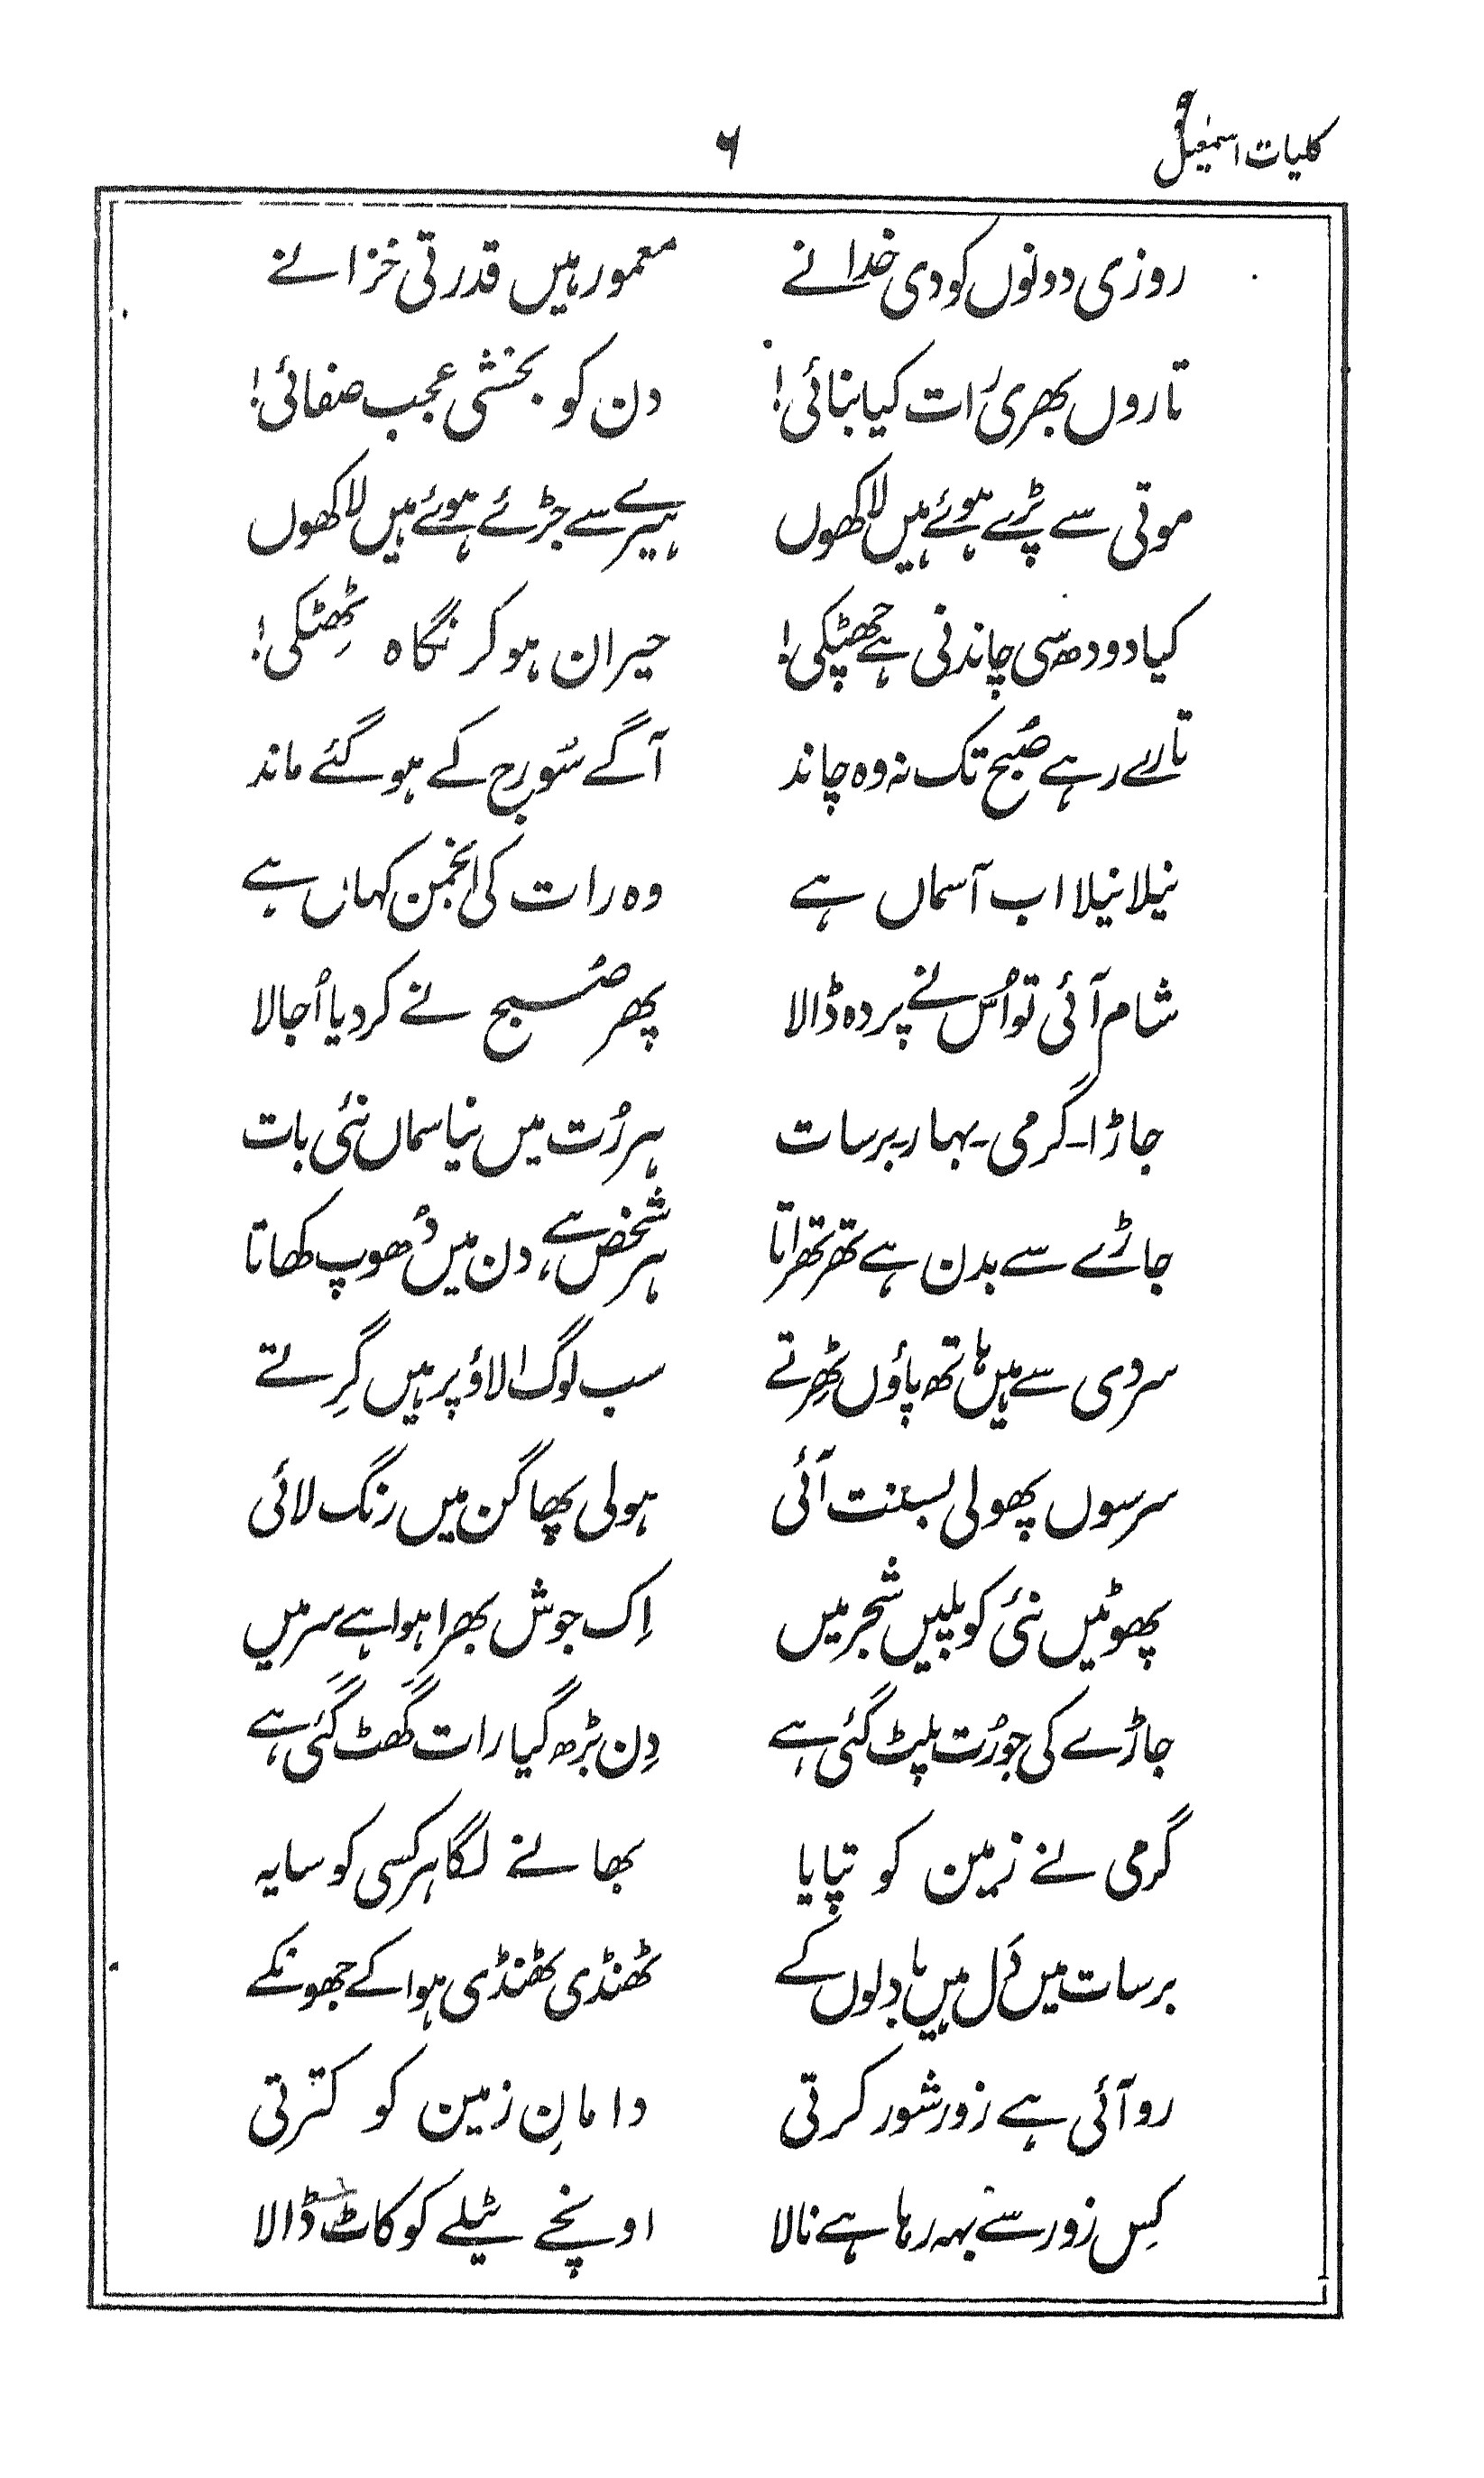 کلیات اسمٰعیلؒ ۶
روزی دونوں کو دی خدا نے معمور ہیں قدرتی خزانے
تاروں بھری رات کیا بنائی! دن کو بخشی عجب صفائی!
موتی سے پڑے ہوئے ہیں لاکھوں ہیرے سے جڑے ہوئے ہیں لاکھوں
کیا دودھ سی چاندنی ہے چھٹکی! حیران ہو کر نگاہ ٹھِٹکی!
تارے رہے صُبح تک نہ وہ چاند آگے سُورج کے ہو گئے ماند
نیلا نیلا اب آسماں ہے وہ رات کی انجمن کہاں ہے
شام آئی تو اُس نے پردہ ڈالا پھر صُبح نے کر دیا اُجالا
جاڑا۔ گرمی۔ بہار۔ برسات ہر رُت میں نیا سماں نئی بات
جاڑے سے بدن ہے تھرتھراتا ہر شخص ہے، دن میں دُھوپ کھاتا
سردی سے ہیں ہاتھ پاؤں ٹھِرتے سب لوگ الاؤ پر ہیں گِرتے
سرسوں پھولی بسنت آئی ہولی پھاگن میں رنگ لائی
پھوٹیں نئی کونپلیں شجر میں اِک جوش بھرا ہوا ہے سر میں
جاڑے کی جو رُت پلٹ گئی ہے دِن بڑھ گیا رات گھٹ گئی ہے
گرمی نے زمین کو تپایا بھانے لگا ہر کسی کو سایہ
برسات میں دَل ہیں بادلوں کے ٹھنڈی ٹھنڈی ہوا کے جھونکے
رو آئی ہے زور شور کرتی دامانِ زمین کو کترتی
کِس زور سے بہہ رہا ہے نالا اونچے ٹیلے کو کاٹ ڈالا